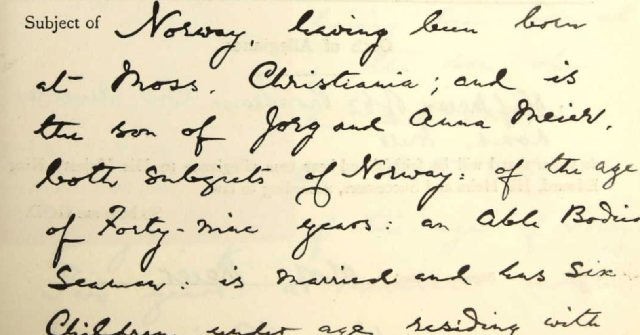 Subject of Norway, having been born
at Moss. Christiania; and is
the son of Jorg and Anna Meier,
both subjects of Norway: of the age
of Forty-nine years: an Able Bodied
Seaman: is married and has six
Children under age residing with